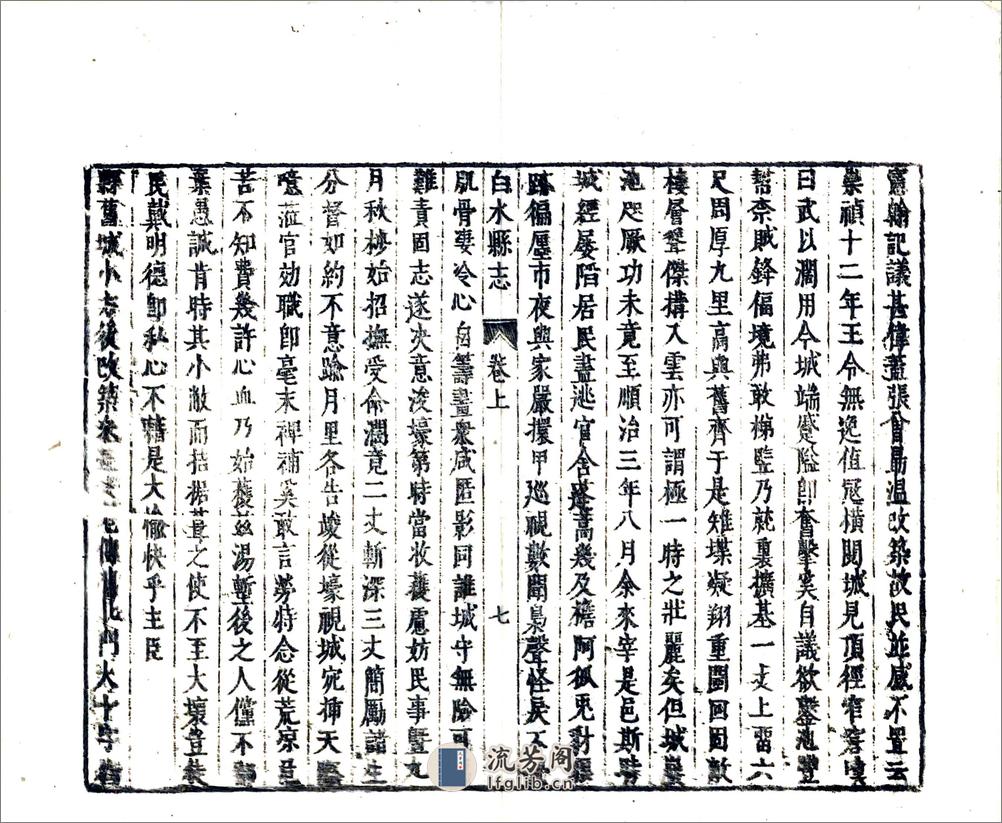 憲翰記議甚偉蓋張曾易溫改築故民並感不置云
崇禎十二年王令無逸值冦橫閱城見頂徑窄窪嘆
曰武以濶用今城端蹙隘卽奮擊奚自議欲鑿池豐
幇奈賊鋒偪境弗敢梯墍乃就裏擴基一丈上畱六
尺周厚九里高與舊齊于是雉堞凝翔重闉回固敵
樓層聳傑構入雲亦可謂極一時之壯麗矣但城
池咫厥功未竟至順治三年八月余來宰是邑斯時
城經屡陷居民盡逃官舍蓬蒿幾及檐阿狐兎對
跡徧廛市夜與家嚴擐甲巡視數聞梟聲怪戾不
白水縣志 卷上 七
肌骨寒冷心自籌畫衆咸匿影回誰城守無險可
難責固志遂決意浚壕第時當收穫慮妨民事曁九
月秋杪始招撫受命濶竟二丈斬深三丈簡勵諸生
分督如約不意踰月里各告竣從壕視城宛挿天
噫蒞官効職卽毫末裨補奚敢言勞特念從荒凉
苦不知費幾許心血乃始獲玆湯塹後之人僅不
葉愚誠肯時其小敝而拮据葺之使不至大壞豈
民戴明德卽私心不藉是大愉快乎主臣
縣舊城小志後改築 北門大十字
流芳阁
lfglib.cn